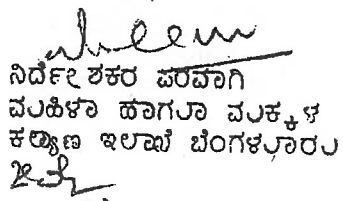 ನಿರ್ದೇಶಕರ ಪರವಾಗಿ
ಮಹಿಳಾ ಹಾಗೂ ಮಕ್ಕಳ
ಕಲ್ಯಾಣ ಇಲಾಖೆ ಬೆಂಗಳೂರು